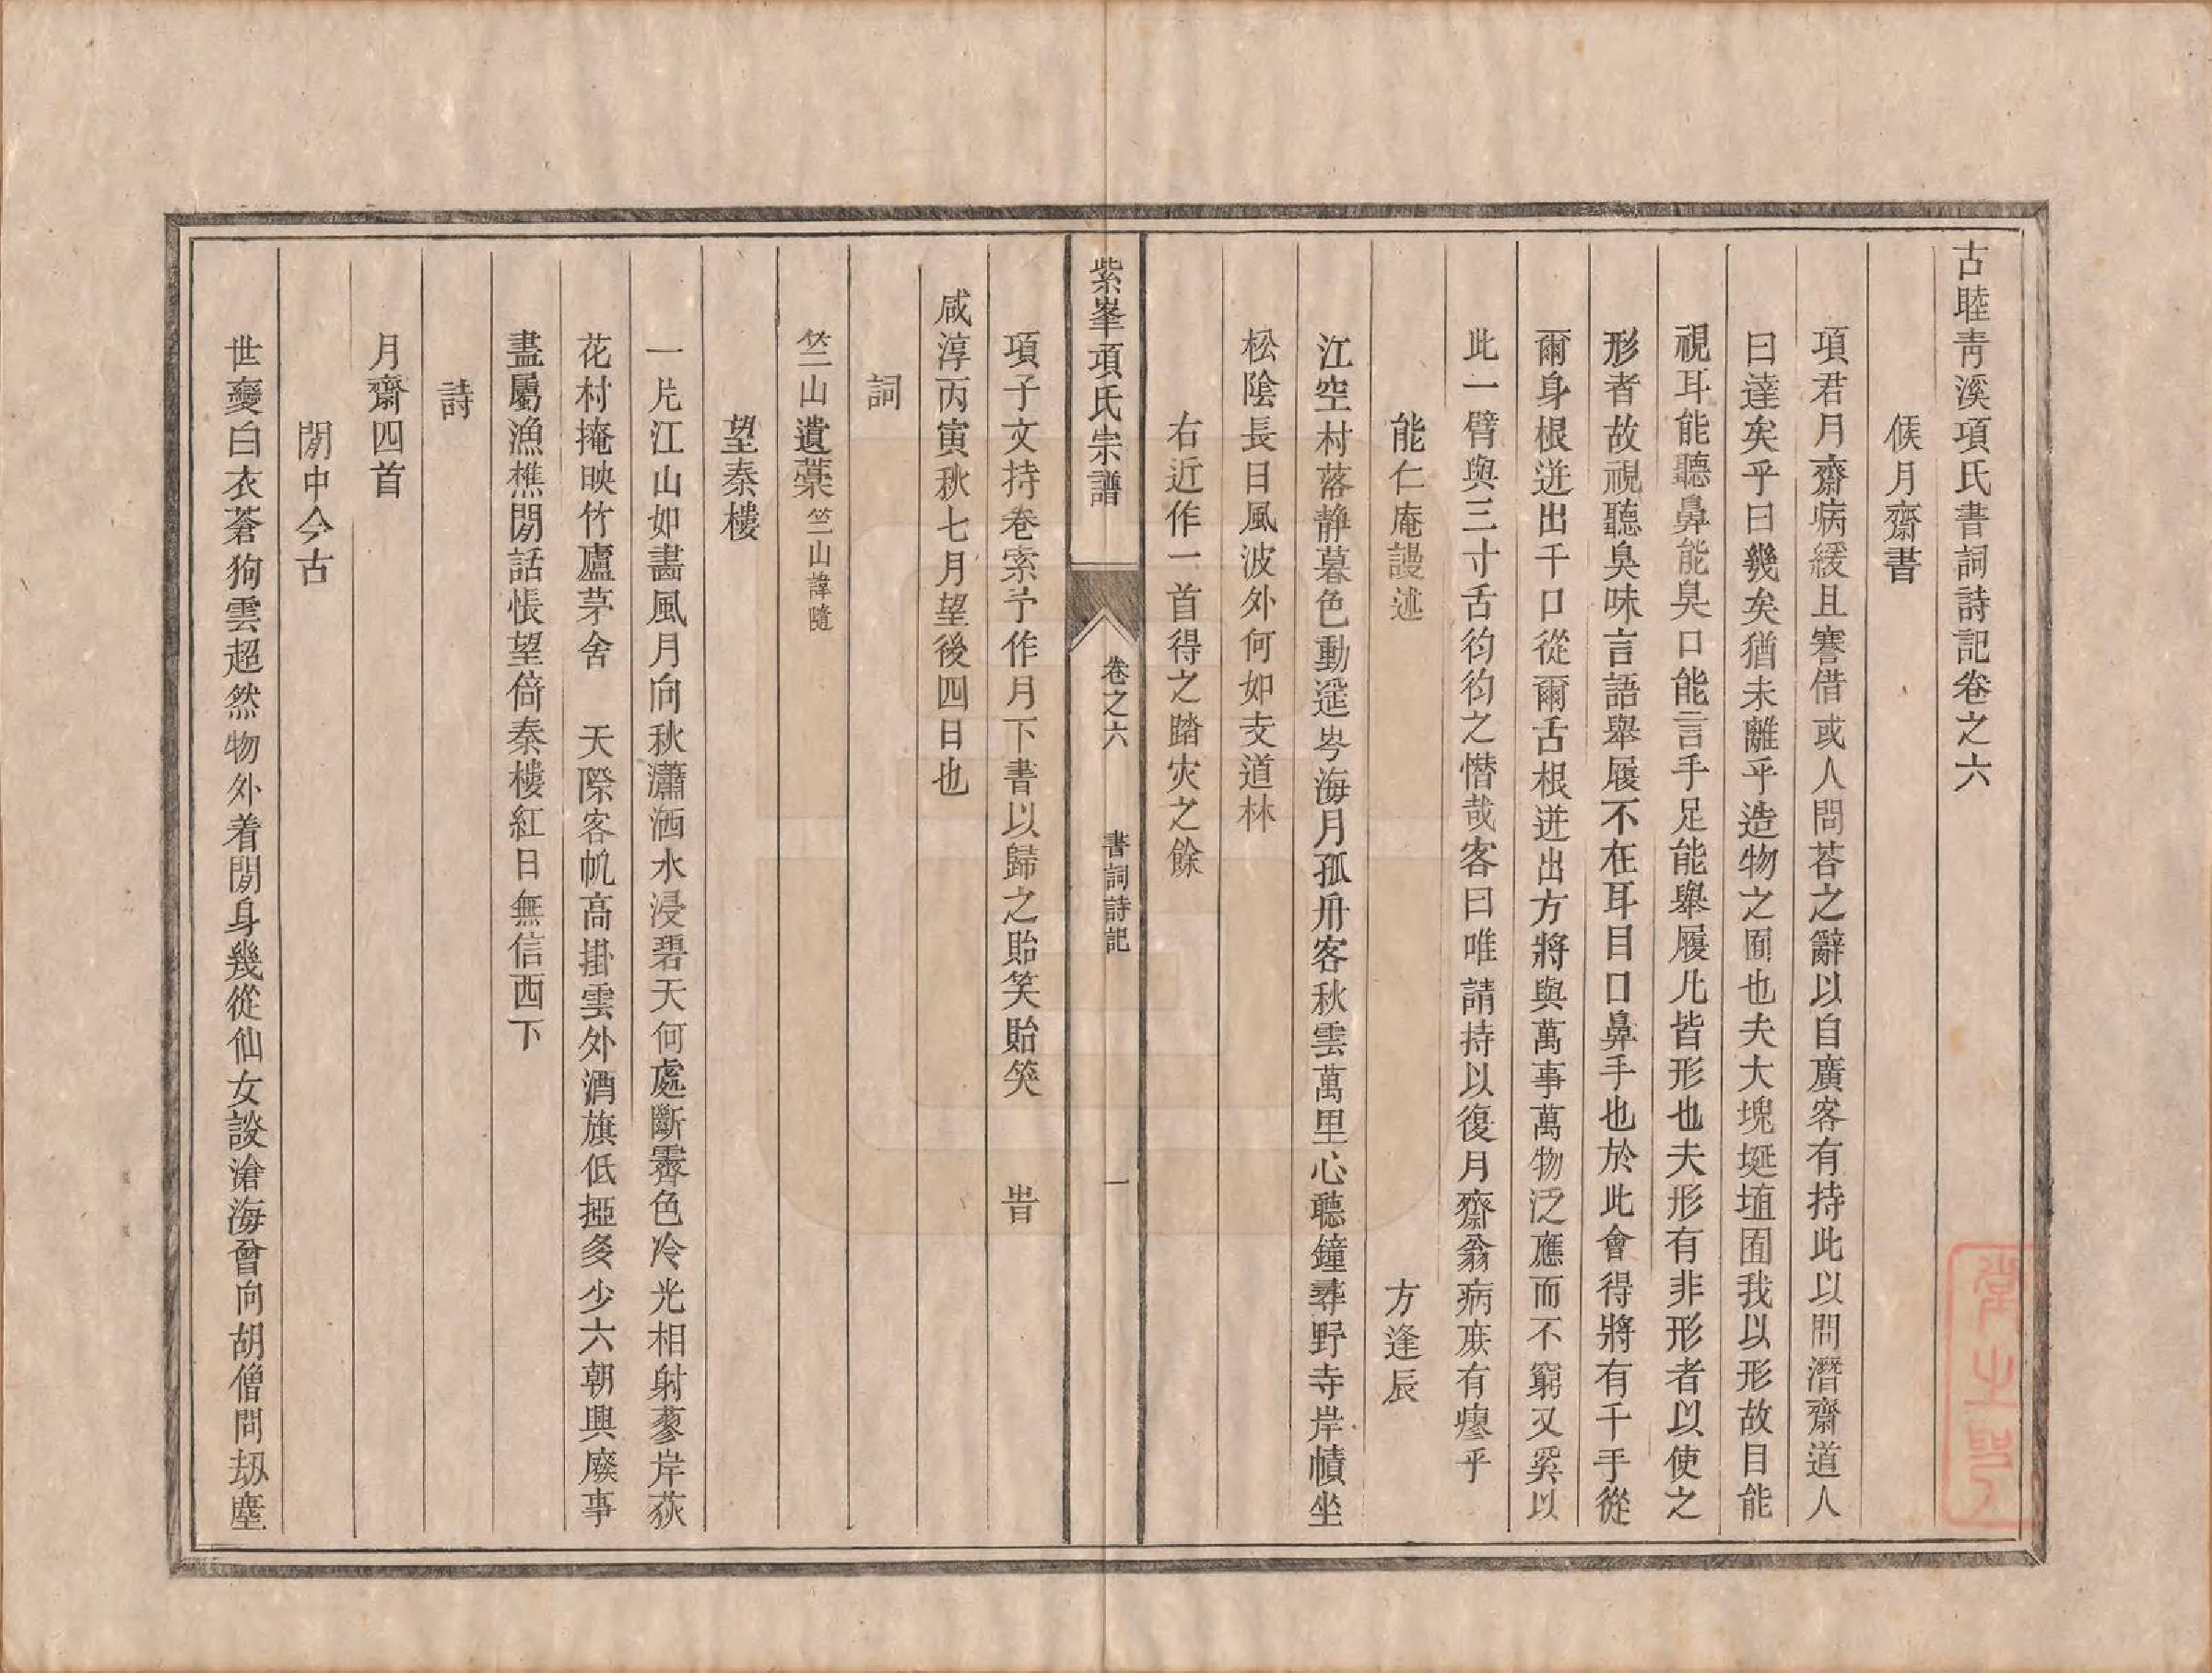 古睦青溪項氏書詞詩記卷之六
候月齋書
項君月齋病緩且謇借或人問荅之辭以自廣客有持此以問潛齋道人
曰達矣乎曰幾矣猶未離乎造物之囿也夫大塊埏埴囿我以形故目能
視耳能聽鼻能臭口能言手足能舉履凡皆形也夫形有非形者以使之
形者故視聽臭味言語舉履不在耳目口鼻手也於此會得將有千手從
爾身根迸出千口從爾舌根迸出方將與萬事萬物泛應而不窮又奚以
此一臂與三寸舌㣿㣿之憯哉客曰唯請持以復月齋翁病庶有瘳乎
能仁庵謾述　方逢辰
江空村落静暮色動遥岑海月孤舟客秋雲萬里心聽鐘尋野寺岸幘坐
松陰長日風波外何如支道林
右近作一首得之踏灾之餘
紫峯項氏宗譜　卷之六　書詞詩記　一
項子文持卷索予作月下書以歸之貽笑貽笑　旹
咸淳丙寅秋七月望後四日也
詞
竺山遺藁 竺山諱隨
望秦樓
一片江山如畵風月向秋瀟洒水浸碧天何處斷霽色冷光相射蓼岸荻
花村掩映竹廬茅舍　天際客帆高掛雲外酒旗低掗多少六朝興廢事
盡屬漁樵閒話悵望倚秦樓紅日無信西下
詩
月齋四首
閒中今古
世變白衣蒼狗雲超然物外着閒身幾從仙女談滄海曾向胡僧問劫塵